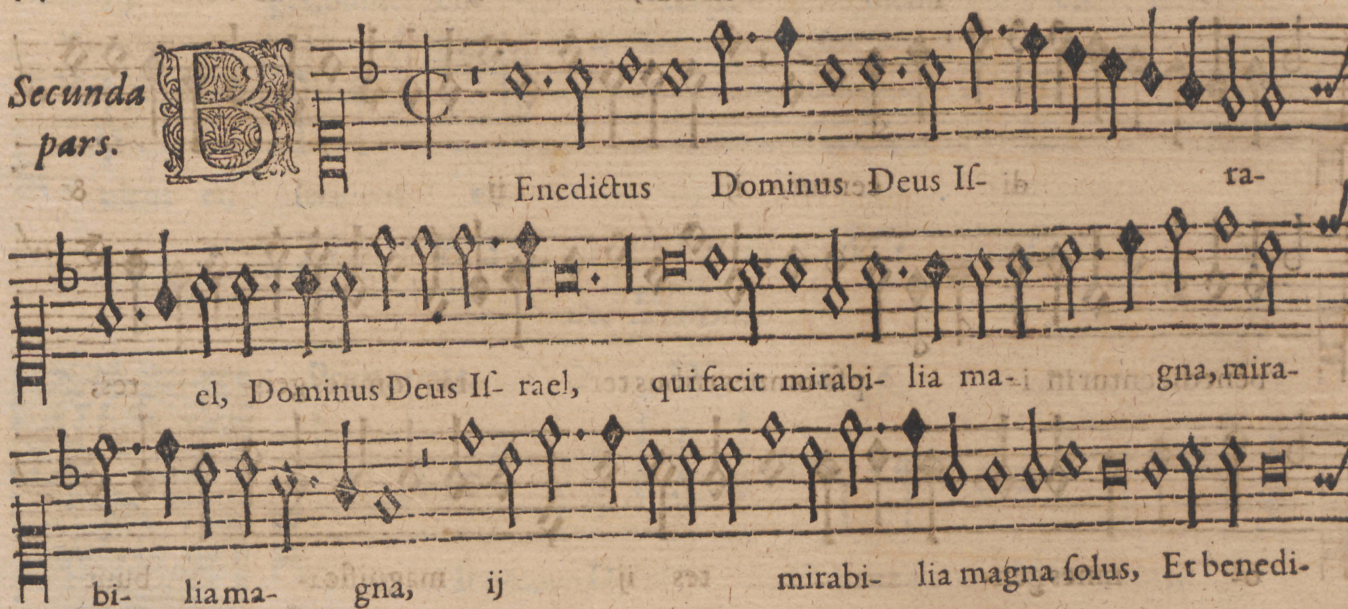 Secunda
pars.
BEnedictus Dominus Deus Iſ- ra-
el, Dominus Deus Iſ- rael, qui facit mirabi- lia ma- gna, mira-
bi- lia ma- gna, ij mirabi- lia magna ſolus, Et benedi-